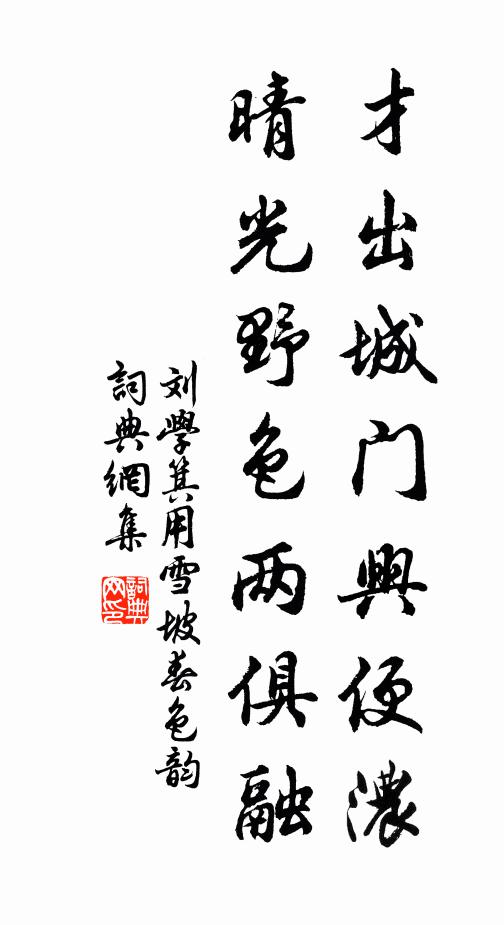 才出城门興便濃
晴光野色两俱融
刘學箕用雪坡春色韵
詞典網集
詞典網印